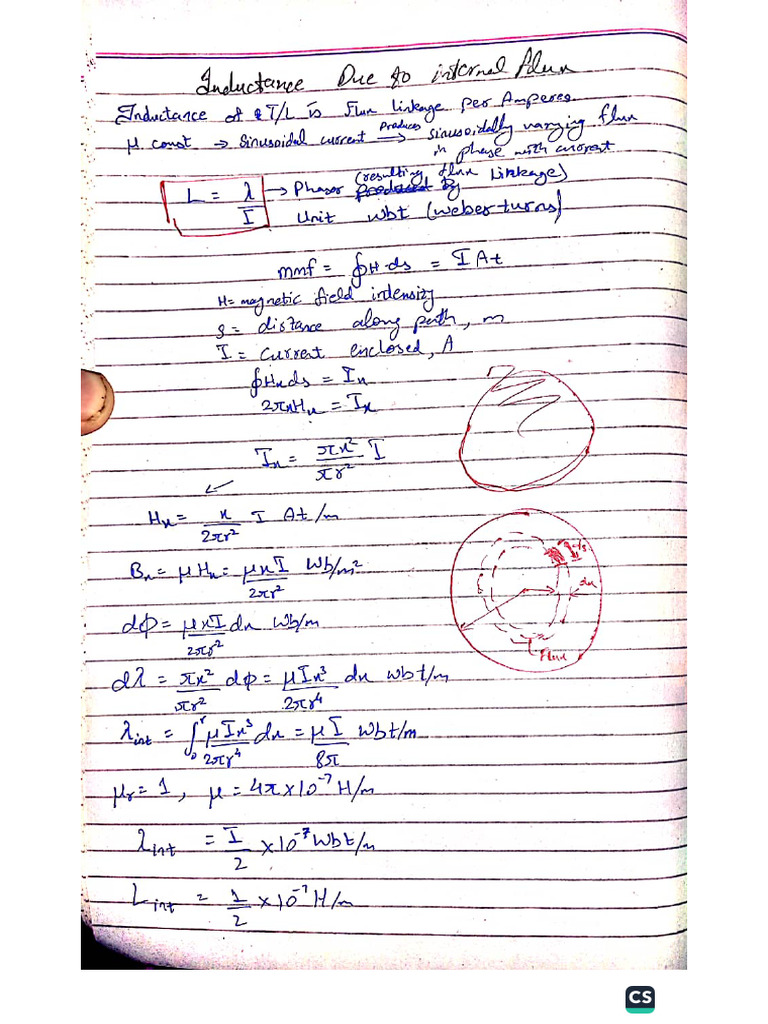 Inductance Due to internal flux
Inductance of a T/L is Flux linkage per Amperes.
μ const → Sinusoidal current Produces → sinusoidally varying flux
in phase with current
L = λ/I → Phasor (resulting flux Linkage)
Unit Wbt (weber-turns)
mmf = ∮H·ds = I At
H= magnetic field intensity
s = distance along path, m
I = Current enclosed, A
∮Hxds = Ix
2πxHx = Ix
Ix = πx²/πr² I
Hx = x/2πr² I At/m
Bx = μHx = μxI/2πr² Wb/m²
dφ = μxI/2πr² dx Wb/m
ds
dx
flux
dλ = πx²/πr² dφ = μIx³/2πr⁴ dx Wbt/m
λint = ∫₀ʳ μIx³/2πr⁴ dx = μI/8π Wbt/m
μr = 1, μ = 4π×10⁻⁷ H/m
λint = I/2 ×10⁻⁷ Wbt/m
Lint = 1/2 ×10⁻⁷ H/m
CS